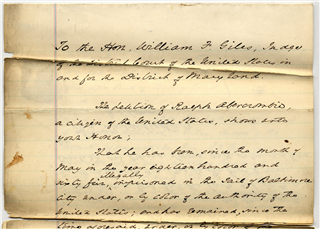 To the Hon. William F. Giles, Judge
of the District Court of the United States in
and for the District of Maryland.
The petition of Ralph Abercrombie,
a citizen of the United States, shows unto
your Honor;
That he has been, since the month of
May in the year eighteen hundred and
illegally
sixty five, imprisoned in the Jail of Baltimore
City under, or by color of the authority of the
United States; and has remained, since the
time aforesaid, under, or by color